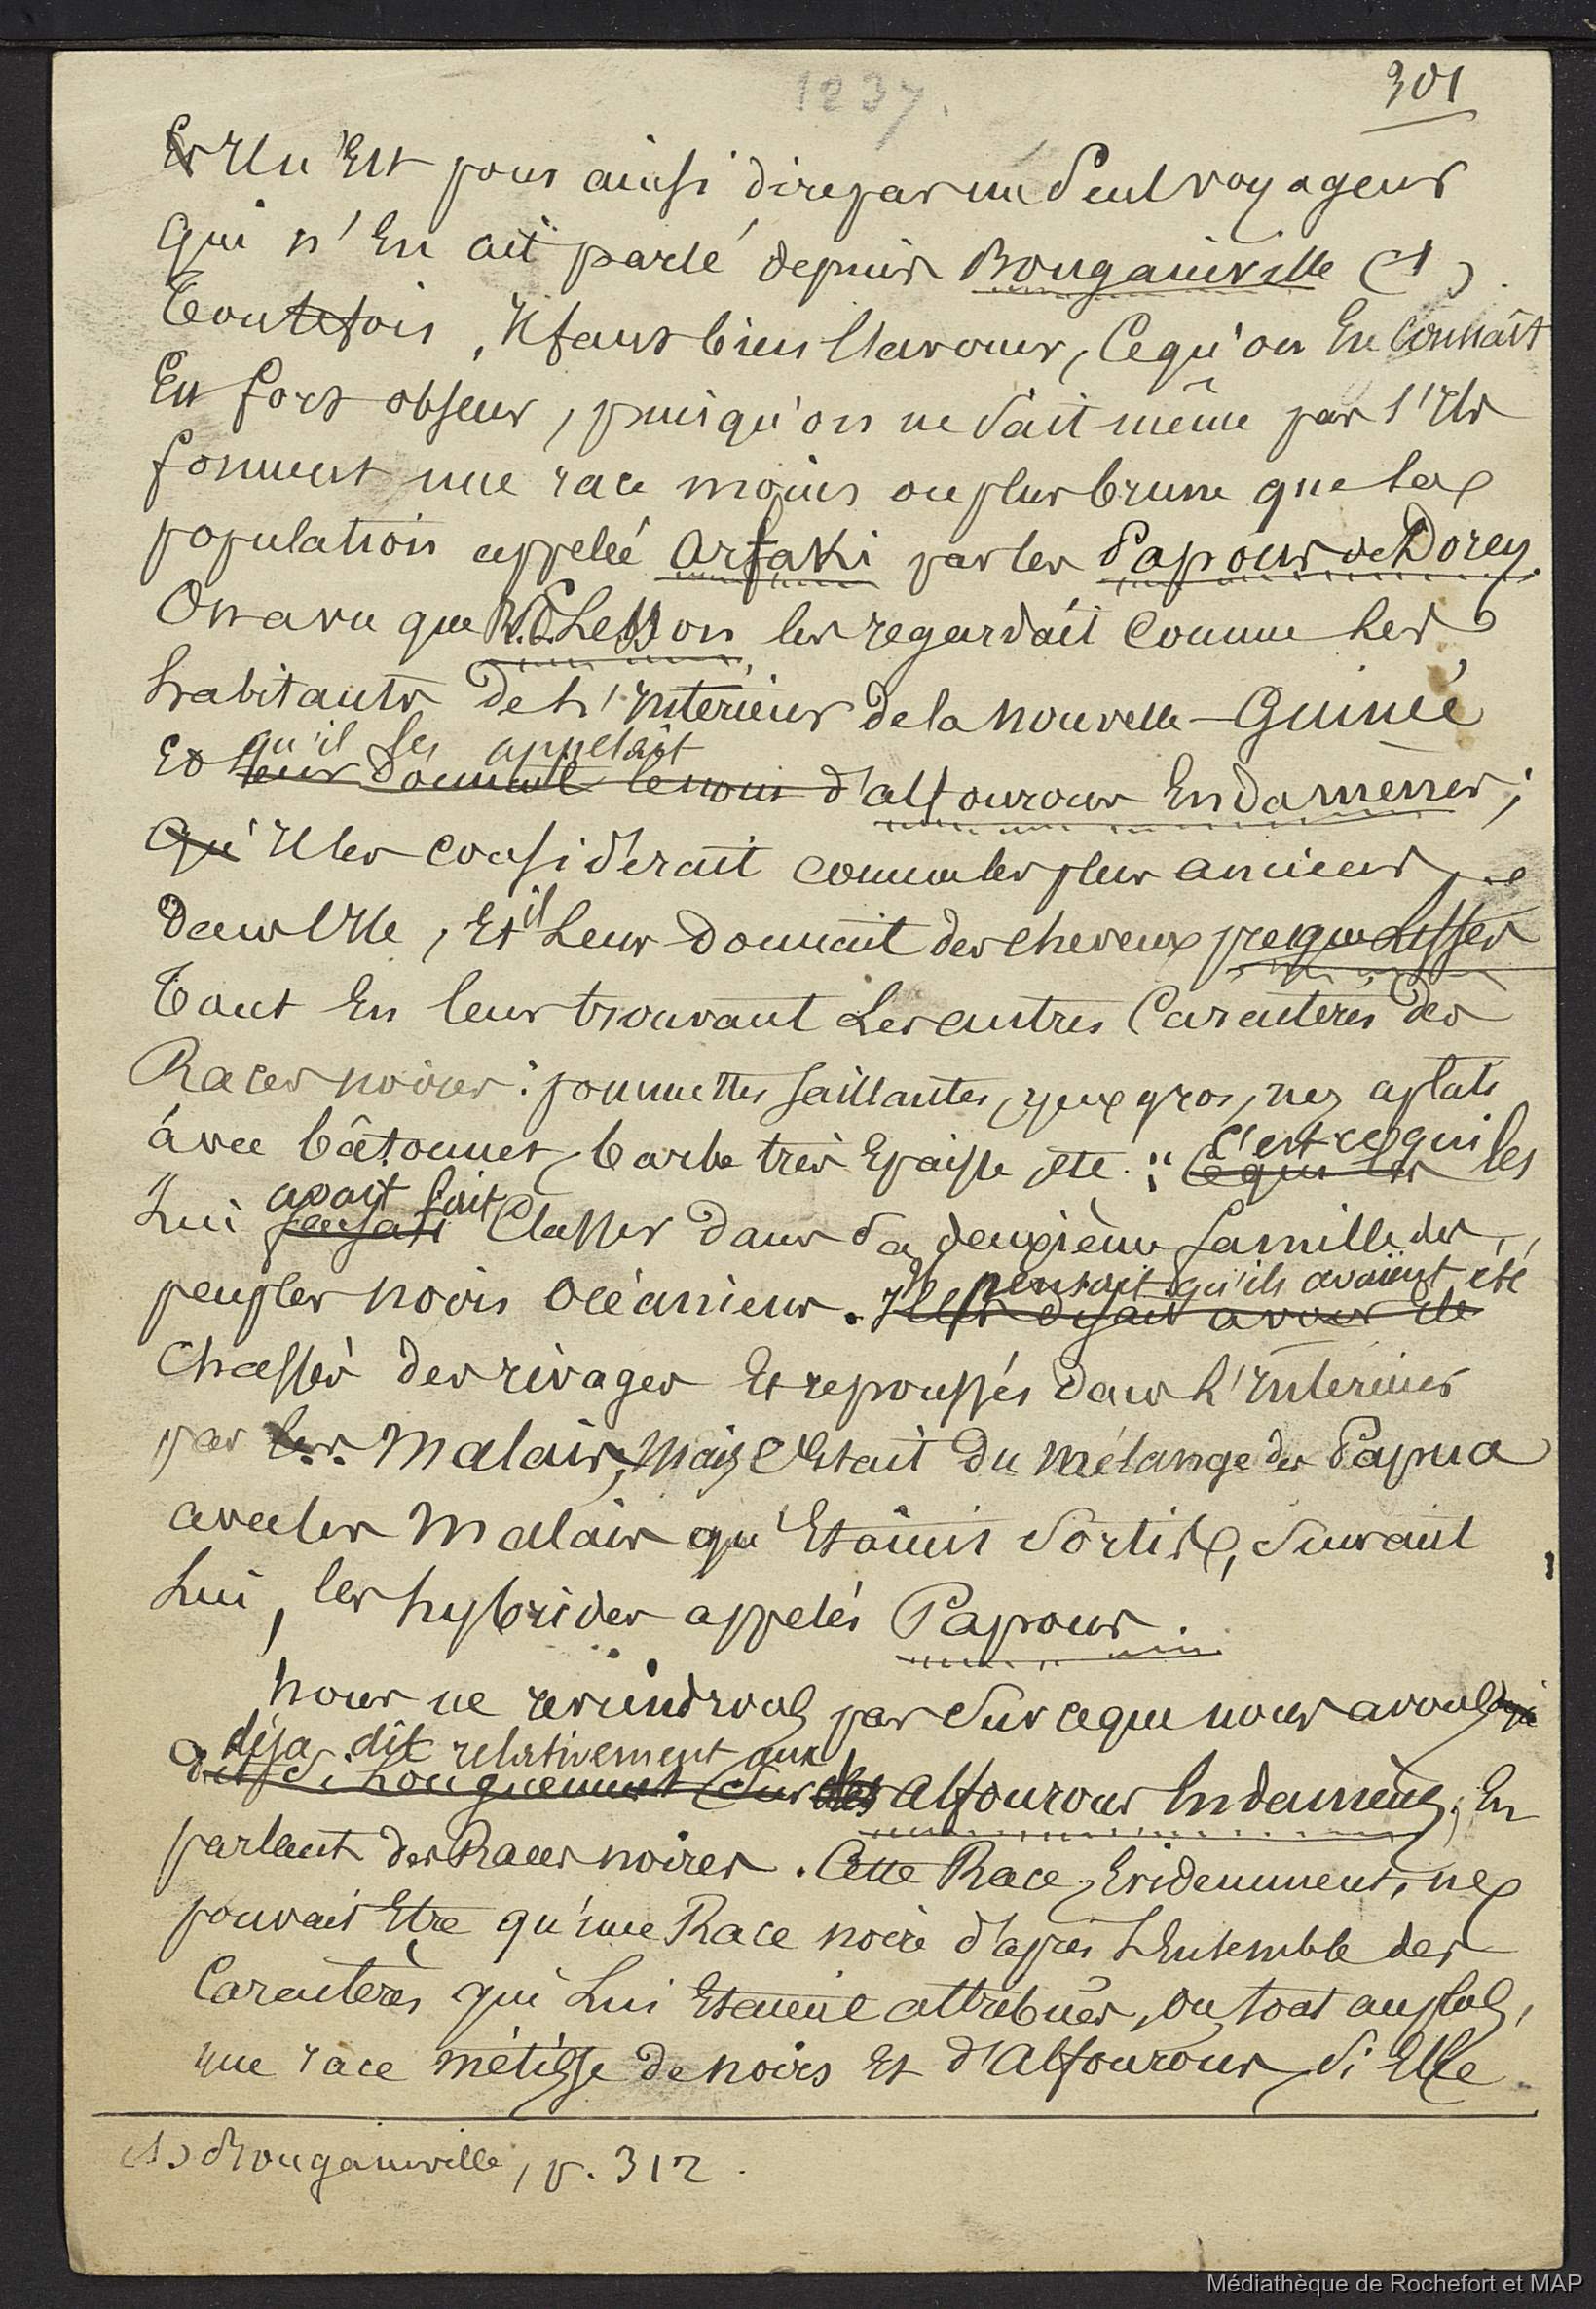 1237.
301
Il n'est pour ainsi dire pas un seul voyageur
qui n'en ait parlé depuis Bougainville (1).
Toutefois, il faut bien l'avouer, ce qu'on en connaît
est fort obscur, puisqu'on ne sait même pas s'ils
forment une race moins ou plus brune que la
population appelée arfaki par les Papous de Dorey.
On a vu que R. P. Lesson les regardait comme les
habitants de l'intérieur de la nouvelle-Guinée
qu'il les appelait
Et leur donnait le nom d'alfourous Endamènes;
qu'il les considérait comme les plus anciens
dans l'île, et il leur donnait des cheveux presque lisses
tout en leur trouvant les autres caractères des
Races noires: pommettes saillantes, yeux gros, nez aplati
avec bâtonnet, barbe très épaisse, etc.: c'est ce qui
ce qui les les
avait fait
lui faisait classer dans sa deuxième famille des
peuples noirs océaniens. Il pensait qu'ils avaient été
chassés des rivages et repoussés dans l'intérieur
par les Malais; mais c'était du mélange des Papua
avec les Malais qu'étaient sortis, suivant
lui, les hybrides appelés Papous.
Nous ne reviendrons pas sur ce que nous avons déjà
déja dit relativement aux
dit si longuement sur les alfourous Endamènes, en
parlant des Races noires. Cette Race, évidemment, ne
pouvait être qu'une Race noire d'après l'ensemble des
caractères qui lui étaient attribués, ou tout au plus,
une race métisse de noirs et d'Alfourous, si elle
(1) Bougainville, p. 312.
Médiathèque de Rochefort et MAP